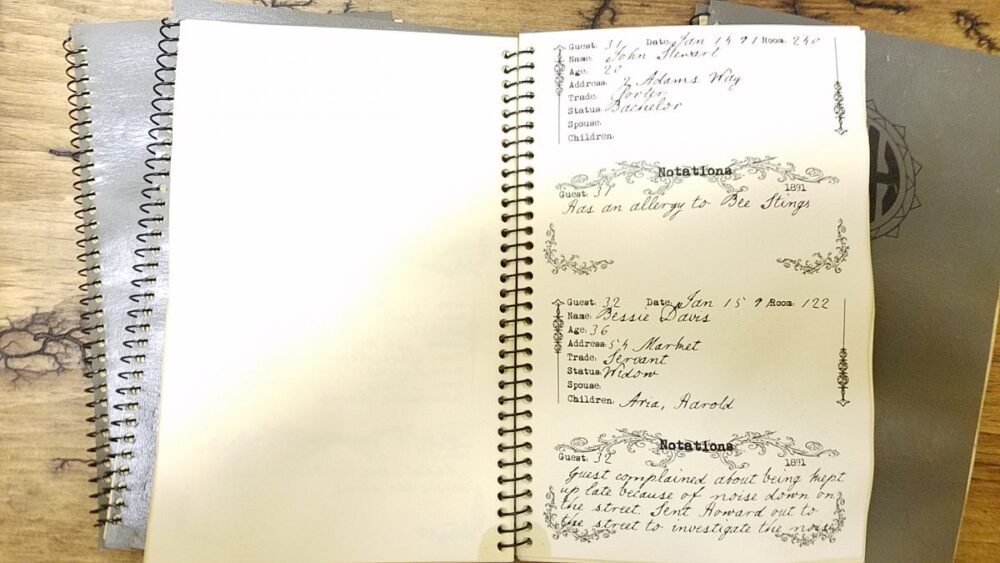 Guest: 31 Date: Jan 15 91 Room: 240
Name: John Stewart
Age: 20
Address: 7 Adams Way
Trade: Porter
Status: Bachelor
Spouse:
Children:
Notations
Guest: 31 1891
Has an allergy to Bee Stings
Guest: 32 Date: Jan 15 91 Room: 122
Name: Bessie Davis
Age: 36
Address: 54 Market
Trade: Servant
Status: Widow
Spouse:
Children: Aria, Harold
Notations
Guest: 32 1891
Guest complained about being kept
up late because of noise down on
the street. Sent Howard out to
the street to investigate the noise